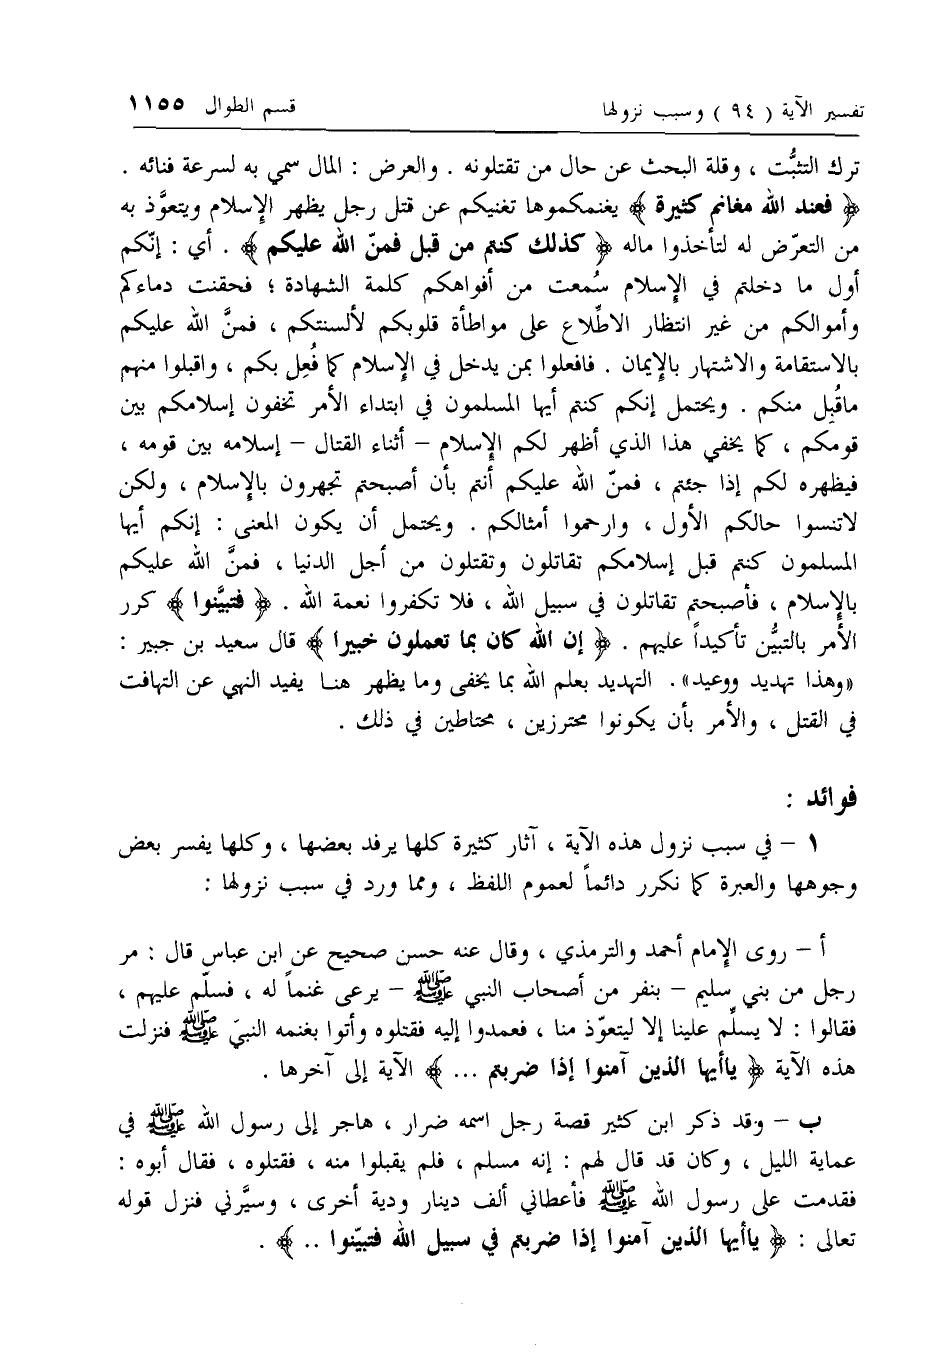 تفسير الآية ( ٩٤ ) وسبب نزولها
قسم الطوال ١١٥٥
ترك التثبُّت ، وقلة البحث عن حال من تقتلونه . والعرض : المال سمي به لسرعة فنائه .
﴿ فعند الله مغانم كثيرة ﴾ يغنمكموها تغنيكم عن قتل رجل يظهر الإسلام ويتعوَّذ به
من التعرّض له لتأخذوا ماله ﴿ كذلك كنتم من قبل فمنّ الله عليكم ﴾ . أي : إنّكم
أول ما دخلتم في الإسلام سُمعت من أفواهكم كلمة الشهادة ؛ فحقنت دماءكم
وأموالكم من غير انتظار الاطِّلاع على مواطأة قلوبكم لألسنتكم ، فمنَّ الله عليكم
بالاستقامة والاشتهار بالإيمان . فافعلوا بمن يدخل في الإسلام كما فُعِل بكم ، واقبلوا منهم
ماقُبِل منكم . ويحتمل إنكم كنتم أيها المسلمون في ابتداء الأمر تخفون إسلامكم بين
قومكم ، كما يخفي هذا الذي أظهر لكم الإسلام – أثناء القتال – إسلامه بين قومه ،
فيظهره لكم إذا جئتم ، فمنّ الله عليكم أنتم بأن أصبحتم تجهرون بالإسلام ، ولكن
لاتنسوا حالكم الأول ، وارحموا أمثالكم . ويحتمل أن يكون المعنى : إنكم أيها
المسلمون كنتم قبل إسلامكم تقاتلون وتقتلون من أجل الدنيا ، فمنَّ الله عليكم
بالإسلام ، فأصبحتم تقاتلون في سبيل الله ، فلا تكفروا نعمة الله . ﴿ فتبيَّنوا ﴾ كرر
الأمر بالتبيُّن تأكيداً عليهم . ﴿ إن الله كان بما تعملون خبيرا ﴾ قال سعيد بن جبير :
«وهذا تهديد ووعيد» . التهديد بعلم الله بما يخفى وما يظهر هنا يفيد النهي عن التهافت
في القتل ، والأمر بأن يكونوا محترزين ، محتاطين في ذلك .
فوائد :
١ – في سبب نزول هذه الآية ، آثار كثيرة كلها يرفد بعضها ، وكلها يفسر بعض
وجوهها والعبرة كما نكرر دائماً لعموم اللفظ ، ومما ورد في سبب نزولها :
أ – روى الإمام أحمد والترمذي ، وقال عنه حسن صحيح عن ابن عباس قال : مر
رجل من بني سليم – بنفر من أصحاب النبي ﷺ – يرعى غنماً له ، فسلّم عليهم ،
فقالوا : لا يسلِّم علينا إلا ليتعوّذ منا ، فعمدوا إليه فقتلوه وأتوا بغنمه النبيَ ﷺ فنزلت
هذه الآية ﴿ ياأيها الذين آمنوا إذا ضربتم ... ﴾ الآية إلى آخرها .
ب – وقد ذكر ابن كثير قصة رجل اسمه ضرار ، هاجر إلى رسول الله ﷺ في
عماية الليل ، وكان قد قال لهم : إنه مسلم ، فلم يقبلوا منه ، فقتلوه ، فقال أبوه :
فقدمت على رسول الله ﷺ فأعطاني ألف دينار ودية أخرى ، وسيَّرني فنزل قوله
تعالى : ﴿ ياأيها الذين آمنوا إذا ضربتم في سبيل الله فتبيّنوا .. ﴾ .